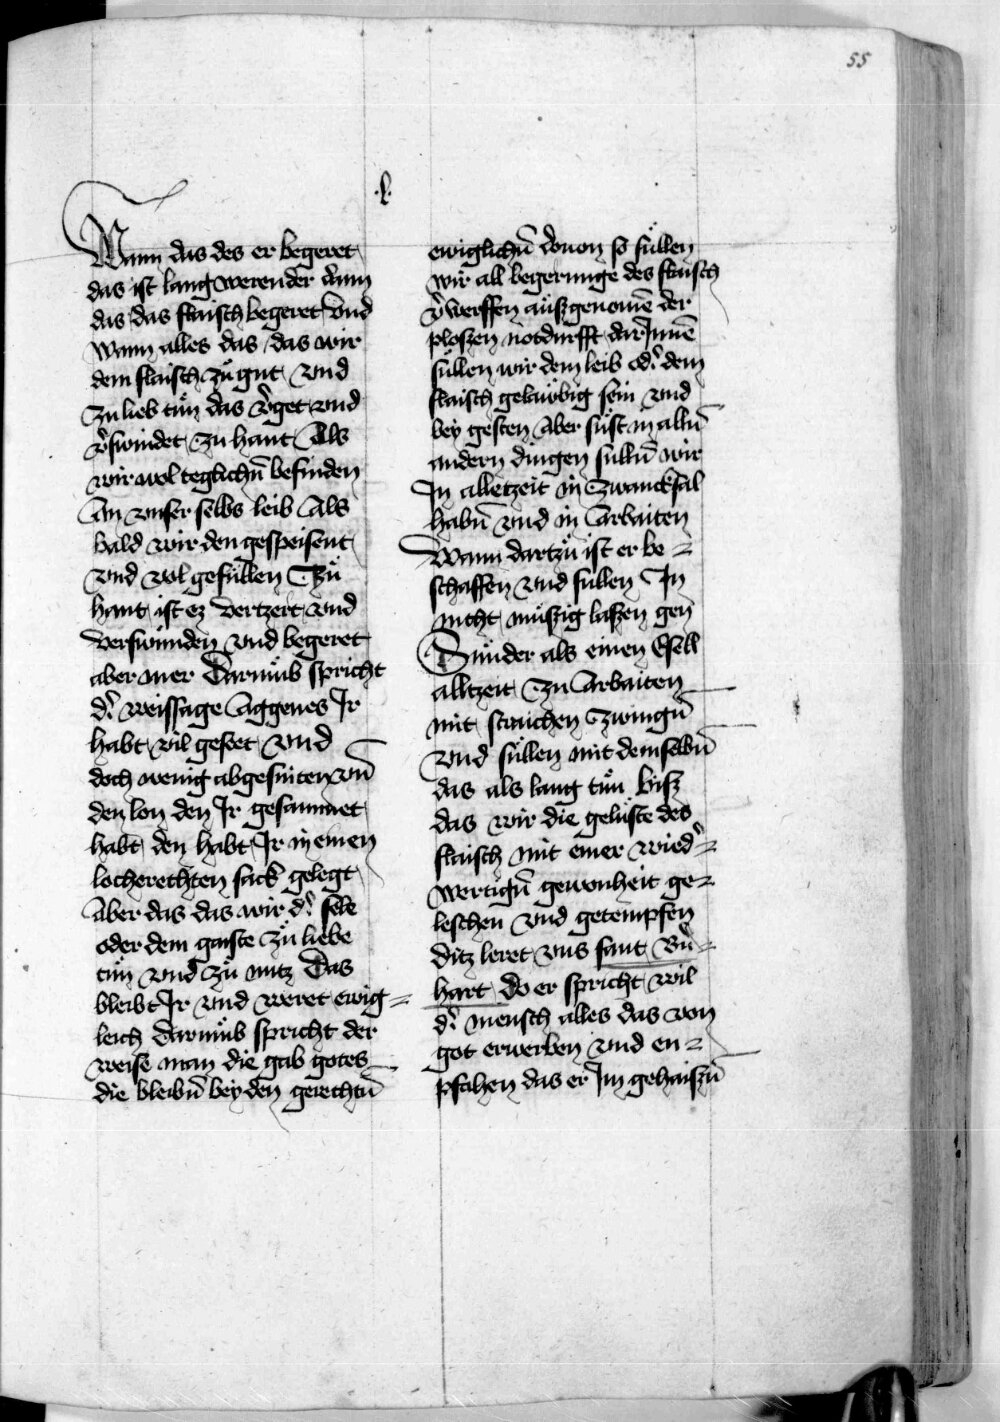 55
.l.
Wann das des er begeret
das ist lang werender dann
das das flaisch begeret vnd
wann alles das das wir
dem flaisch zů gut vnd
zu lieb tůn das v̾get vnd
v̾swindet zu hant Als
wir wol teglichñ befinden
An vnser selbs leib Als
bald wir den gespeisent
vnd wol gefüllen Zů
hant ist ez vertzert vnd
verswunden vnd begeret
aber mer Darumb spricht
d̾ weissage Aggeus Ir
habt vil geseet vnd
doch wenig abgesniten vñ
den lon den Ir gesammet
habt den habt Ir in einen
locherechten sack gelegt
Aber das das wir d̾ sele
oder dem gaiste zů liebe
tůn vnd zů nutz Das
bleibt Ir vnd weret ewig=
leich Darumb spricht der
weise man die gab gotes
die bleibñ bey den gerechtñ
ewiglichñ douon so süllen
wir all begerunge des flaisch
v̾werffen außgenomē der
ploszen notdurfft dar Innē
süllen wir dem leib od̾ dem
flaisch gelaubig sein vnd
bey gesten Aber süst in allñ
andern dingen süllñ wir
In alletzeit in zwancksal
habñ vnd in Arbaiten
Wann dartzů ist er be=
schaffen vnd süllen In
nicht müszig laszen gen
Sunder als einen Esell
alltzeit zu Arbaiten
mit straichen zwingñ
vnd süllen mit demselbñ
das als lang tůn bisz
das wir die gelüste des
flaisch mit einer wied̾=
wertigñ gewonheit ge=
leschen vnd getempfen
ditz leret vns sant Bñ=
hart Do er spricht wil
d̾ mensch alles das von
got erwerben vnd en=
pfahen das er Im gehaiszñ